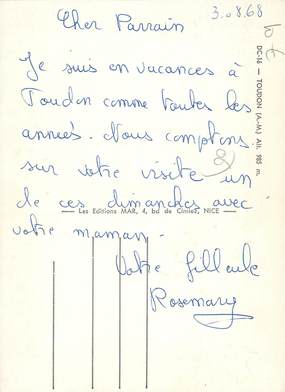 3.08.68
Cher Parrain
Je suis en vacances à
Toudon comme toutes les
années. Nous comptons
sur votre visite un
de ces dimanches avec
votre maman.
Votre filleule
Rosemary
Les Editions MAR, 4, bd de Cimiez, NICE
DC-16 — TOUDON (A.-M.) Alt. 985 m.
10 €